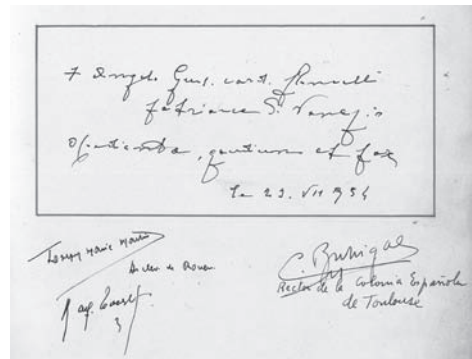 + Angelo Gius. card. Roncalli
patriarca Venezia
et pax
le 23. VII 954
Joseph Marie Martin
de Rouen
C. Buhigas
Rector de la Colonia Española
de Toulouse